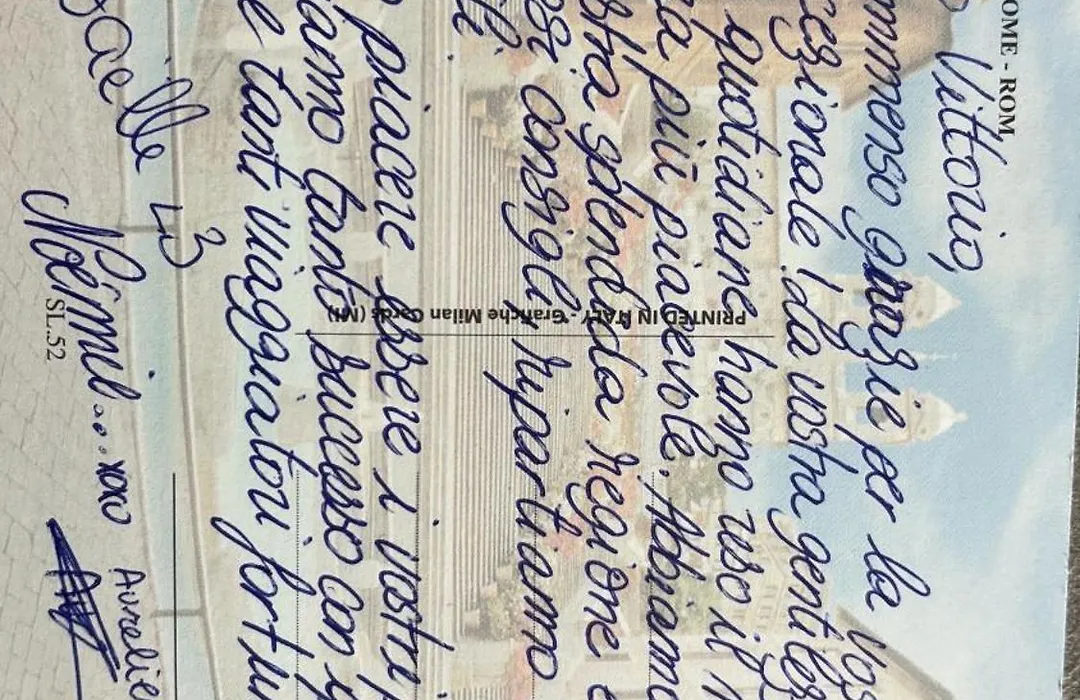 OME - ROM
Vittorio,
mmenso grazie per la vos
cezionale! La vostra gentilez
quotidiane hanno reso il
tà più piacevole. Abbiamo
stra splendida regione e
si consigli, ripartiamo
li
piacere essere i vostri
iamo tanto successo con
e tanti viaggiatori fortun
aelle <3
Noémie... xoxo
Aurélie
SL.52
PRINTED IN ITALY - Grafiche Milan Cards (MI)